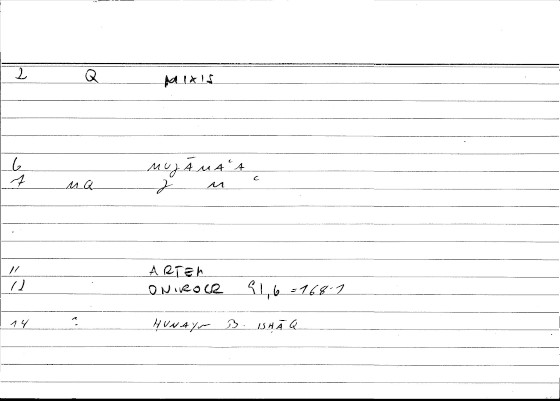 2 Q MIXIS
6 MUJĀMAʿA
7 MQ J M ʿ
11 ARTEM
12 ONIROCR 91,6 =168-1
14 : HUNAYN B. ISHĀQ